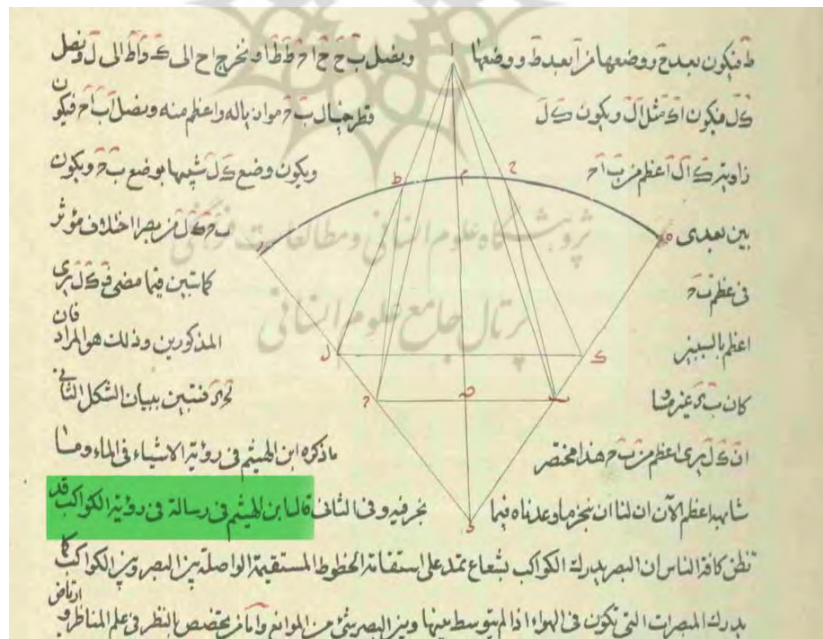 ط فيكون بعد ح ر ووضعها من آ بعد ط د ووضعها ا ويصل ب ح ح ا ح ط ط ا و نخرج ا ح الى ك و ا ط الى ل و نصل
ك ل فيكون ا ك مثل ا ل ويكون ك ل قطر خيال ب ح مواز باله واعظم منه ويصل ا ب ا ح فيكون
زاوية ك ا ل اعظم من ب ا ح ويكون وضع ك ل شبيها بوضع ب ح ويكون
بين بعدى ب ح ك ل من بصر ا اختلاف مؤثر
فى عظم ب ح كما تبين فيما مضى ف ك ل يرى
اعظم بالسببين المذكورين وذلك هو المراد فان
كان ب د غير مساو ل ح د فنتبين ببيان الشكل الثانى
ان ك ل يرى اعظم من ب ح هذا مختصر ماذكره ابن الهيثم فى رؤية الاشياء فى الماء وما
شابهه اعظم الآن ان لنا ان ننجز ما وعدناه فيما نحر فيه وفى الثانى قال ابن الهيثم فى رسالة فى رؤية الكواكب قد
تظن كافة الناس ان البصر يدرك الكواكب بشعاع يمتد على استقامة الخطوط المستقيمة الواصلة بين البصر وبين الكواكب كما
يدرك المبصرات التى تكون فى الهواء اذا لم يتوسط بينها وبين البصر شئ من الموانع واما من تخصص بالنظر فى علم المناظر و ارتاض
پژوهشگاه علوم انسانی و مطالعات فرهنگی
پرتال جامع علوم انسانی